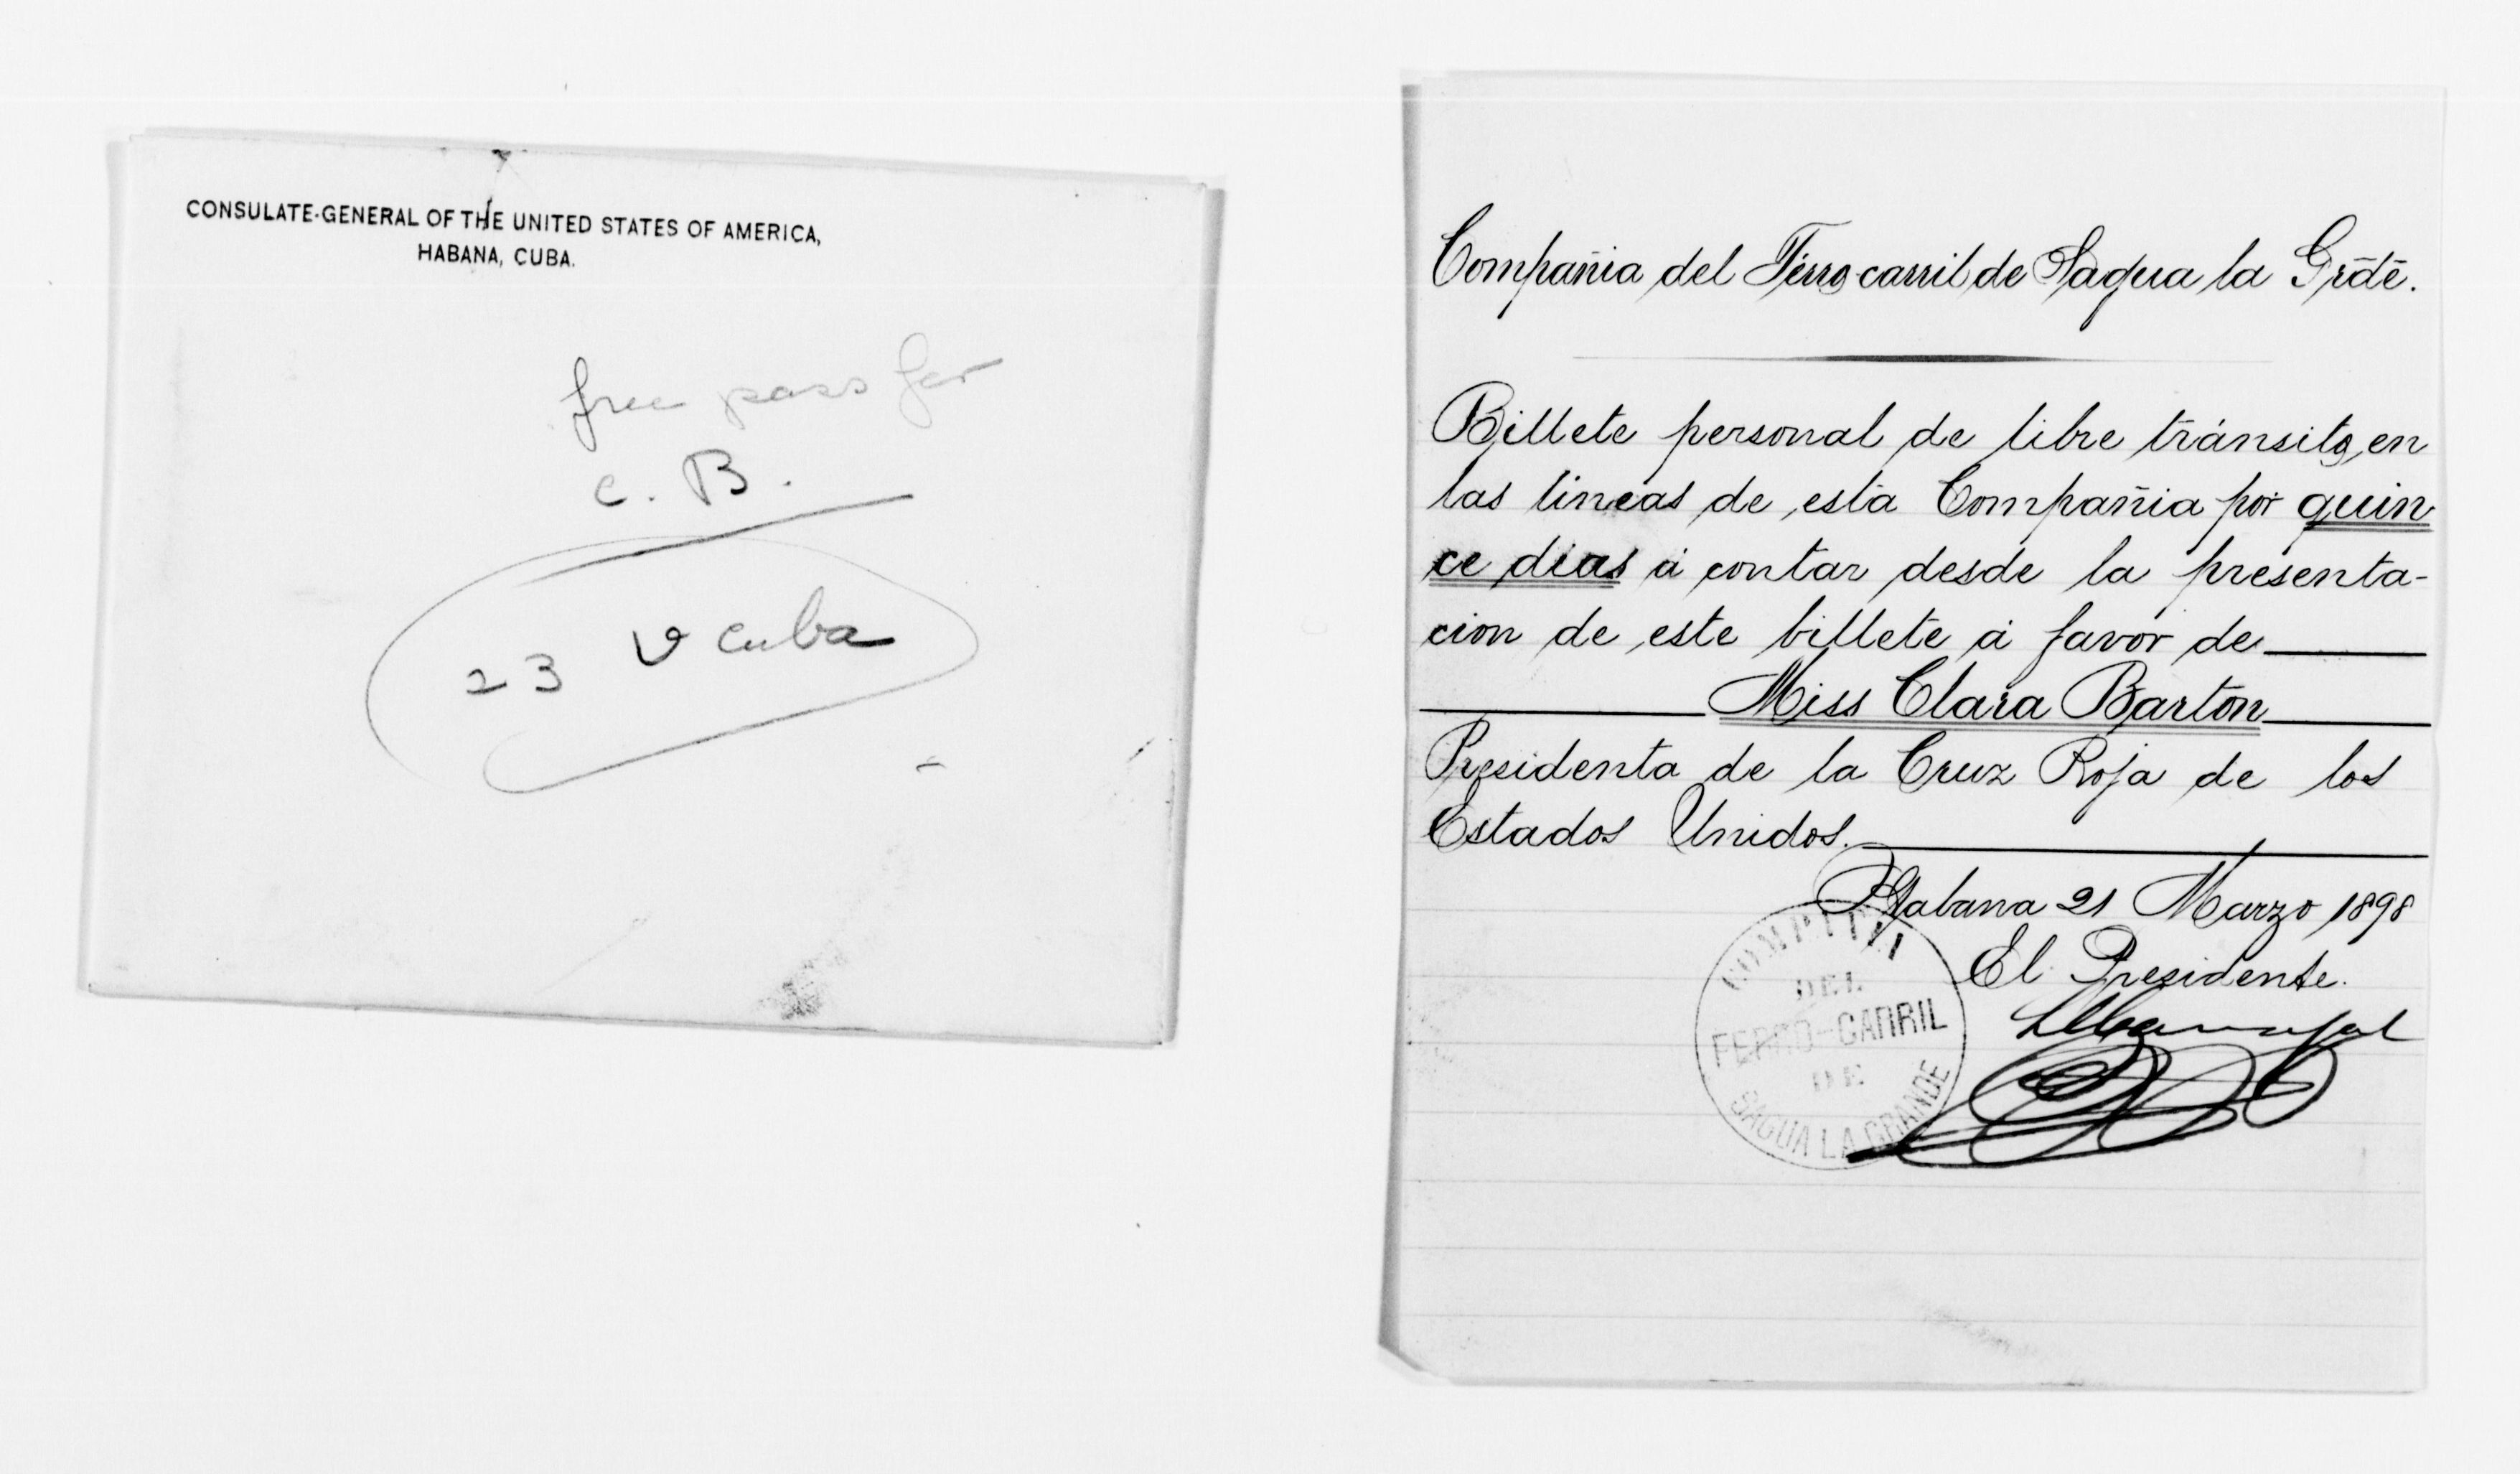 CONSULATE-GENERAL OF THE UNITED STATES OF AMERICA,
HABANA, CUBA.
free pass for
C. B.
23 Cuba
Compañia del Ferro-carril de Sagua la Grde.
Billete personal de libre tránsito, en
las lineas de esta Compañia por quin
ce dias á contar desde la presenta-
cion de este billete á favor de
Miss Clara Barton
Presidenta de la Cruz Roja de los
Estados Unidos.
Habana 21 Marzo 1898
El Presidente.
COMPAÑIA
DEL
FERRO-CARRIL
DE
SAGUA LA GRANDE